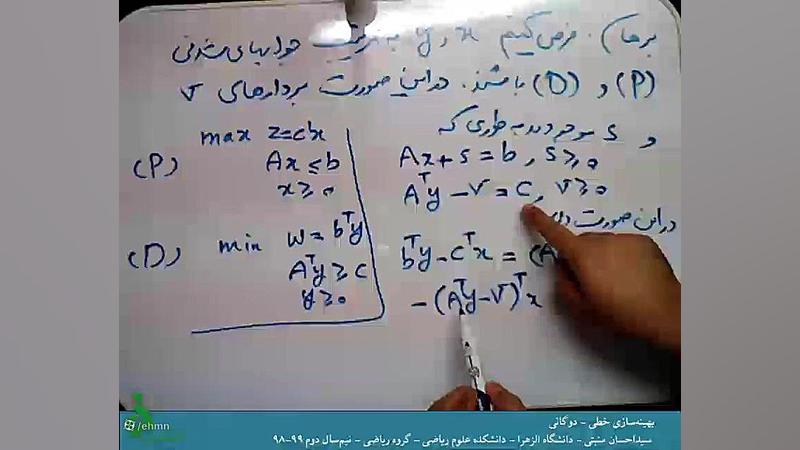 برهان. فرض کنیم x و y به ترتیب جوابهای شدنی
(P) و (D) باشند. در این صورت بردارهای v
و s موجودند به طوری که
max z=cx
(P) Ax ≤ b
x ≥ 0
Ax + s = b , s ≥ 0
Aᵀy - v = c, v ≥ 0
در این صورت
(D) min w = bᵀy
Aᵀy ≥ c
y ≥ 0
bᵀy - cᵀx = (A
- (Aᵀy - v)ᵀ x
بهینه‌سازی خطی - دوگانی
سیداحسان منبتی - دانشگاه الزهرا - دانشکده علوم ریاضی - گروه ریاضی - نیم‌سال دوم ۹۹-۹۸
/ehmn